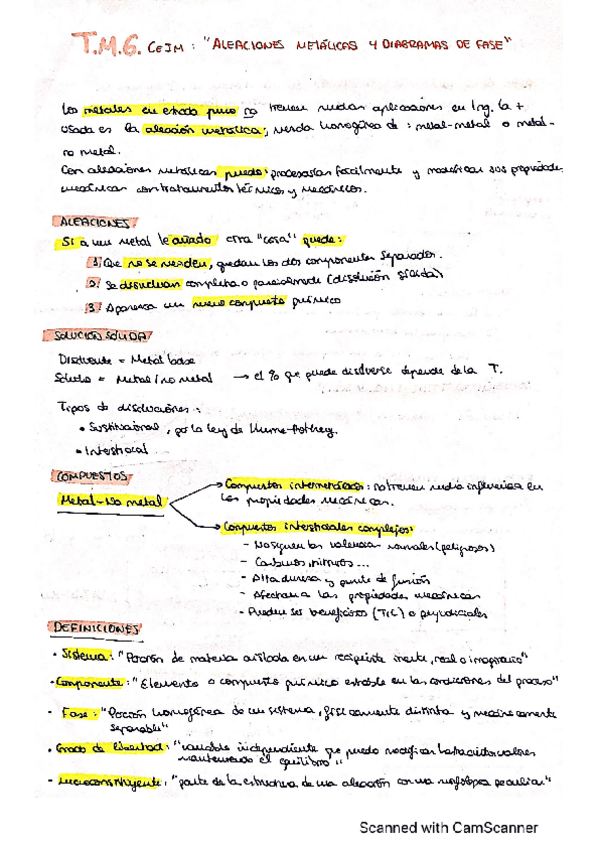 T.M.6. CEIM : "ALEACIONES METÁLICAS Y DIAGRAMAS DE FASE"
Los metales en estado puro no tienen muchas aplicaciones en Ing. la +
usada es la aleación metálica, mezcla homogénea de : metal-metal o metal-
no metal.
Con aleaciones metálicas puedo: procesarlas fácilmente y modificar sus propiedades
mecánicas con tratamientos térmicos y mecánicos.
ALEACIONES
Si a un metal le añado otra "cosa" puede:
1. Que no se mezclen, quedan los dos componentes separados.
2. Se disuelvan completa o parcialmente (disolución sólida)
3. Aparezca un nuevo compuesto químico
SOLUCIÓN SÓLIDA
Disolvente = Metal base
Soluto = Metal / no metal → el % que puede disolverse depende de la T.
Tipos de disoluciones :
• Sustitucional, por la ley de Hume-Rothery.
• Intersticial
COMPUESTOS
Metal-No metal
Compuestos intermetálicos : no tienen mucha influencia en
las propiedades mecánicas.
Compuestos intersticiales complejos:
- No siguen las valencias normales (peligrosos)
- Carburos, nitruros ...
- Alta dureza y punto de fusión
- Afectan a las propiedades mecánicas
- Pueden ser beneficiosos (TiC) o perjudiciales
DEFINICIONES
• Sistema : "Porción de materia aislada en un recipiente inerte, real o imaginario"
- Componente : "Elemento o compuesto químico estable en las condiciones del proceso"
- Fase : "Porción homogénea de un sistema, físicamente distinta y mecánicamente
separable"
• Grado de libertad : "variable independiente que puedo modificar hasta ciertos valores
manteniendo el equilibrio"
- Microconstituyente : "parte de la estructura de una aleación con una morfología peculiar."
Scanned with CamScanner